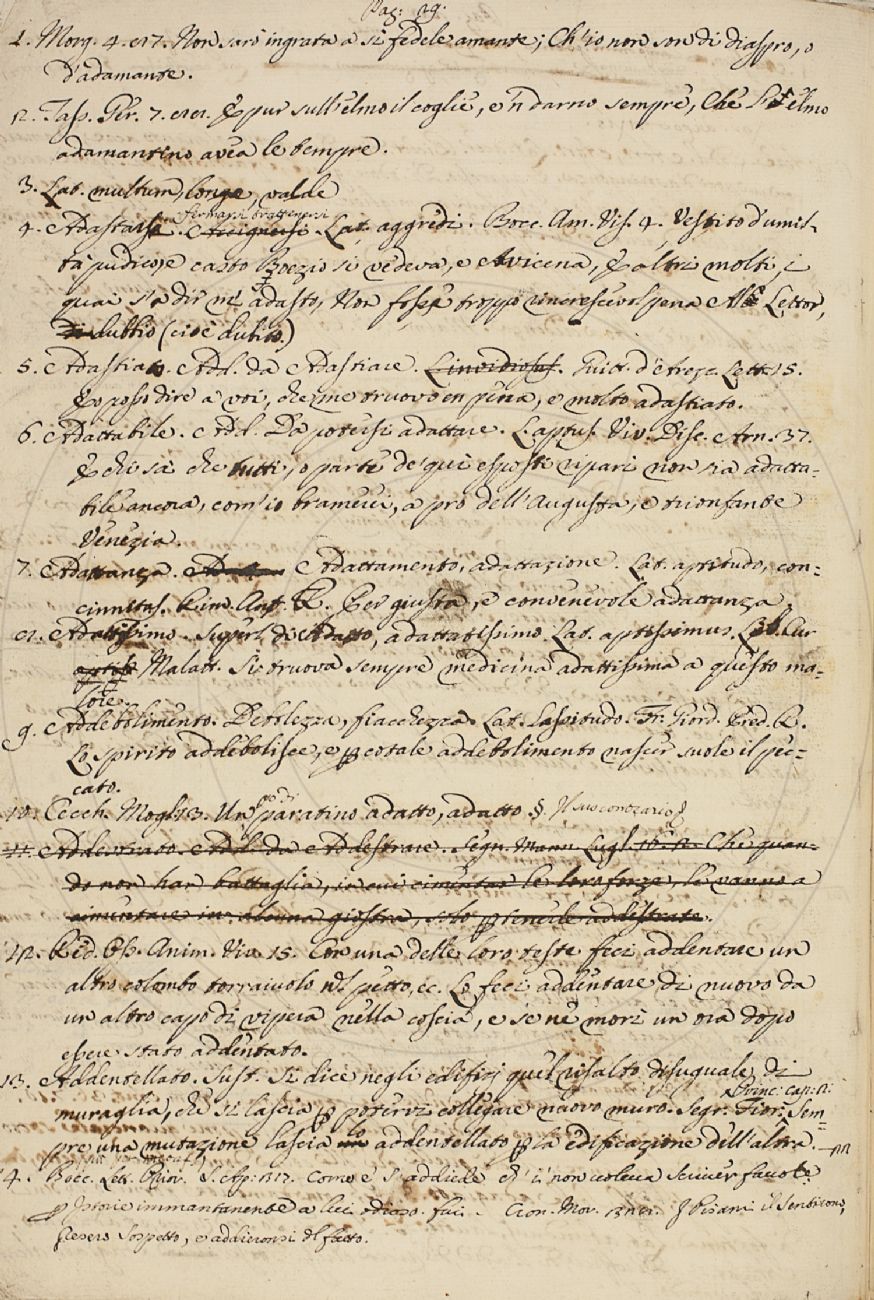 Pag: 29.
1. Morg. 4. 17. Non sarò ingrata a si fedele amante; Ch'io non son di diaspro, o
D'adamante.
2. Tass. Ger. 7. E pur sull'elmo il coglie, e 'ndarno sempre, Che l'elmo
adamantino avea le tempre.
3. Lat. multum, longe, valde
4. Adastarsi. Lat. aggredi. Bocc. Am. Vis. 4. Vestito d'umil-
tà pudico, e casto Boezio si vedeva, e Avicena, E altri molti, i
quai s'a dir m'adasto, Non fosse troppo rincrescevol pena Al Lettor,
dubbio (cioè dubito.)
5. Adastiato. Add. da Adastiare. L'invidiosus. Guitt. d'Arezz. Lett. 15.
E posso dire a voi, che me truovo en pena, e molto adastiato.
6. Adattabile. Add. Da potersi adattare. L. aptus. Viv. Disc. Arn. 37.
E chi sà che tutti, o parte de' quì esposti ripari non sia adatta-
bile ancora, com'io bramerei, a pro dell'Augusta, e trionfante
Venezia.
7. Adattanza. Adattamento, adattazione. Lat. aptitudo, con-
cinnitas. Rim. Ant. R. Per giusta, e convenevole adattanza
Adattissimo. Superl. di Adatto, adattatissimo. Lat. aptissimus. Lib. Cur
Malatt. Si truova sempre medicina adattissima a questo ma-
lore.
9. Addebolimento. Debolezza, fiacchezza. Lat. Lassitudo. Fr. Giord. Pred. R.
Lo spirito addebolisce, e p cotale addebolimento nascer suole il pec-
cato.
10. Cecch. Mogl. 3. Un paratino adatto, adatto §. Il suo contrario §
11. Addestrato. Add. da Addestrare. Segn. Mann. Lugl. 16. 2. Che quan-
do non han battaglia, in cui cimentar le loro forze, le vanno a
cimentare in alcuna giostra, solo p tenerle addestrate.
12. Red. Oss. Anim. Viv. 15. Con una delle loro teste feci addentare un
altro colombo torraiuolo nel petto, ec. Lo feci addentare di nuovo da
un altro capo di vipera nella coscia, e se ne morì un ora dopo
essere stato addentato.
13. Addentellato. Sust. Si dice negli edifizj quel risalto disuguale di
Princ: cap: 2:
muraglia, che si lascia p potervi collegare nuovo muro. Segr. Fior. Sem-
pre una mutazione lascia lo addentellato p la edificazione dell'altra.
Bocc. Lett. Come e' s'addiede ch' i' non voleva scriver favole
Istorie immantanente a lui odioso fui. Cron. Mor. I Pisani il sentirono,
presero sospetto, e addieronsi del fatto.